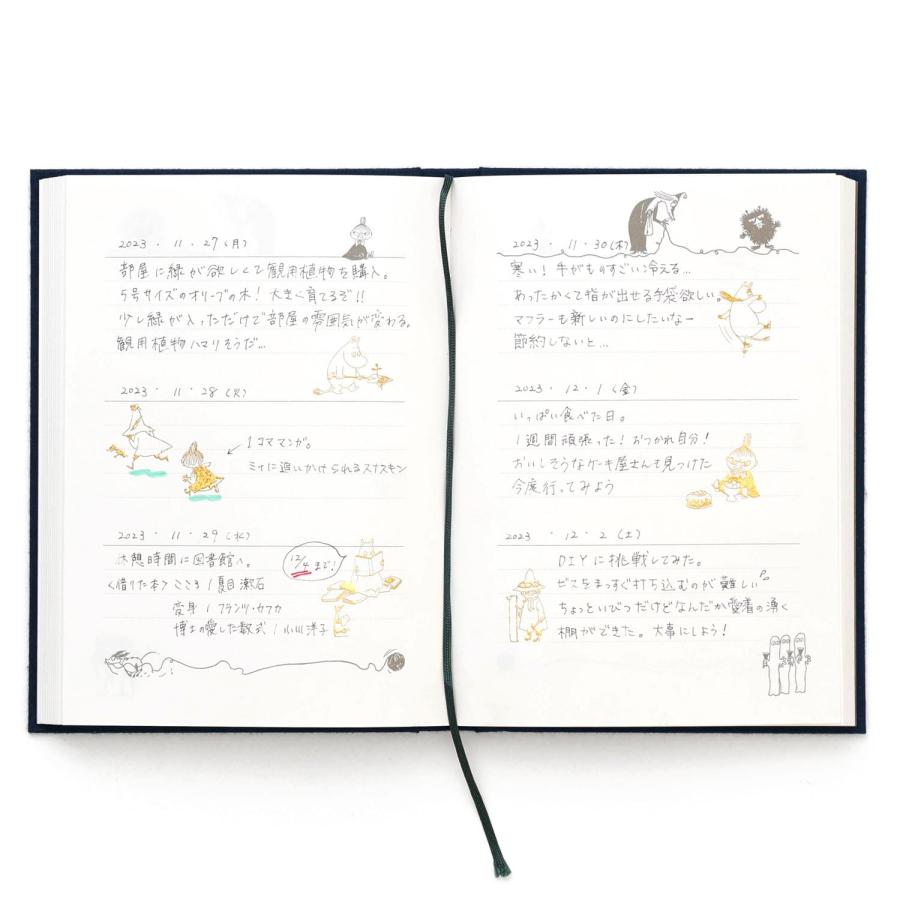 2023 . 11 . 27 (月)
部屋に緑が欲しくて観用植物を購入。
5号サイズのオリーブの木! 大きく育てるぞ!!
少し緑が入っただけで部屋の雰囲気が変わる。
観用植物ハマりそうだ...
2023 . 11 . 28 (火)
1コママンガ。
ミイに追いかけられるスナフキン
2023 . 11 . 29 (水)
休憩時間に図書館へ。
12/4まで!
〈借りた本〉 こころ / 夏目漱石
変身 / フランツ・カフカ
博士の愛した数式 / 小川洋子
2023 . 11 . 30 (木)
寒い! 手がものすごい冷える...
あったかくて指が出せる手袋欲しい。
マフラーも新しいのにしたいなー
節約しないと...
2023 . 12 . 1 (金)
いっぱい食べた日。
1週間頑張った! おつかれ自分!
おいしそうなケーキ屋さんも見つけた
今度行ってみよう
2023 . 12 . 2 (土)
DIYに挑戦してみた。
ビスをまっすぐ打ち込むのが難しい
ちょっといびつだけどなんだか愛着の湧く
棚ができた。大事にしよう!